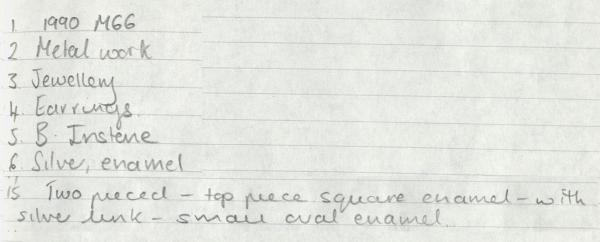 1 1990 M66
2 Metal work
3 Jewellery
4 Earrings.
5. B. Instone
6. Silver, enamel
15 Two pieced - top piece square enamel - with
silver link - small oval enamel.